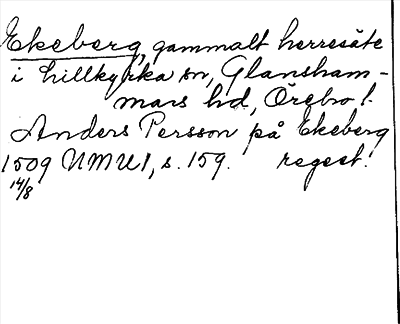 Ekeberg, gammalt herresäte
i Lillkyrka sn, Glansham-
mars hd, Örebro l.
Anders Persson på Ekeberg
1509 NMU1, s. 159. regest.
14/8